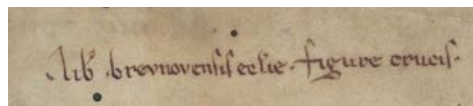 lib̅ · brevnovensis ecl̅ie · figure crucis ·